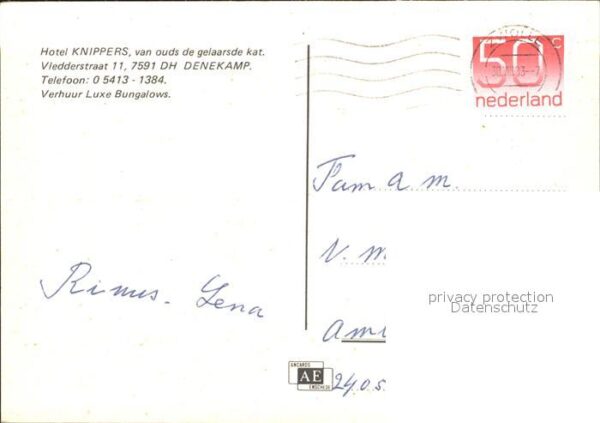 Hotel KNIPPERS, van ouds de gelaarsde kat.
Vledderstraat 11, 7591 DH DENEKAMP.
Telefoon: 0 5413 - 1384.
Verhuur Luxe Bungalows.
50 C
nederland
Fam a m.
V. m
privacy protection
Datenschutz
Rimus. Lena
AE
ENSCHEDE